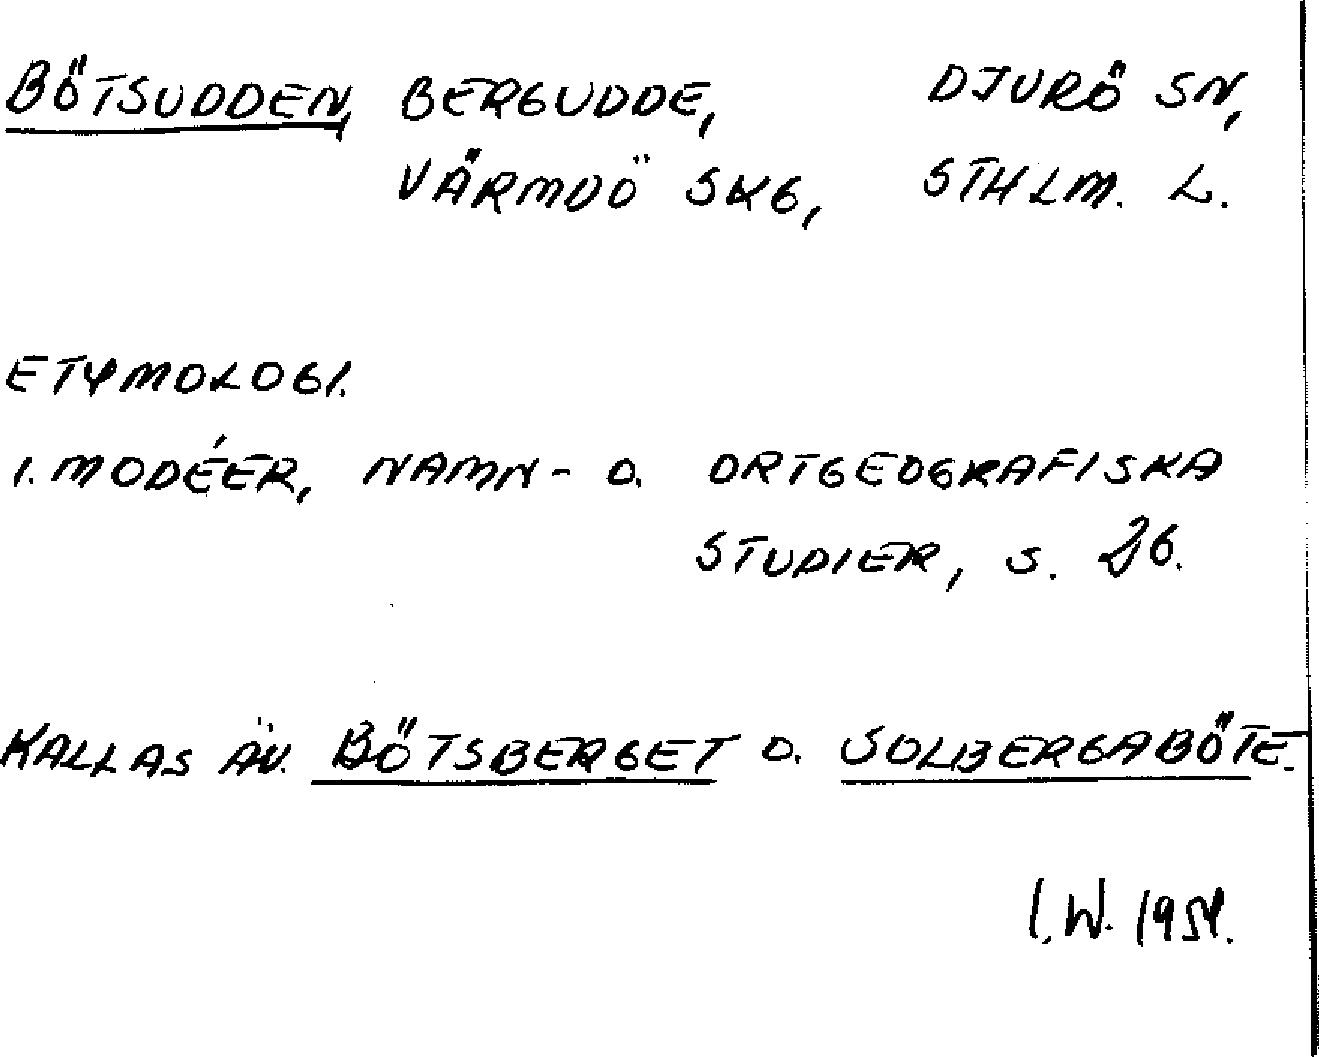 BÖTSUDDEN, BERGUDDE, DJURÖ SN,
VÄRMDÖ SKG, STHLM. L.
ETYMOLOGI.
I. MODÉER, NAMN- O. ORTGEOGRAFISKA
STUDIER, S. 26.
KALLAS ÄV. BÖTSBERGET O. SOLBERGABÖTE.
I.W. 1954.